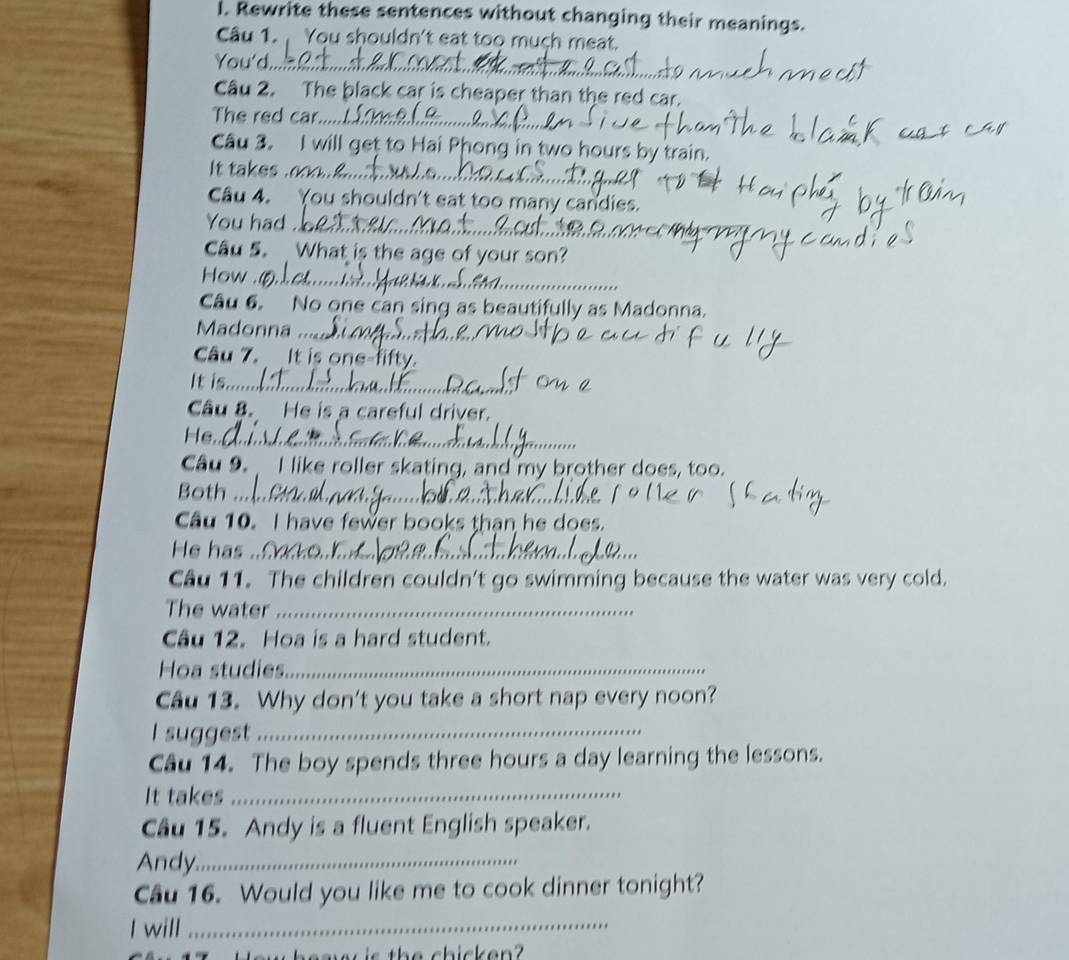 I. Rewrite these sentences without changing their meanings.
Câu 1. You shouldn't eat too much meat.
You'd better not eat to much meat
Câu 2. The black car is cheaper than the red car.
The red car is more expensive than the black car
Câu 3. I will get to Hai Phong in two hours by train.
It takes me two hours to get to Hai phòng by train
Câu 4. You shouldn't eat too many candies.
You had better not eat too many candies
Câu 5. What is the age of your son?
How old is your son
Câu 6. No one can sing as beautifully as Madonna.
Madonna sings the most beautifully
Câu 7. It is one-fifty.
It is It is half past one
Câu 8. He is a careful driver.
He drives carefully
Câu 9. I like roller skating, and my brother does, too.
Both I and my brother like roller skating
Câu 10. I have fewer books than he does.
He has more books them I do
Câu 11. The children couldn't go swimming because the water was very cold.
The water
Câu 12. Hoa is a hard student.
Hoa studies
Câu 13. Why don't you take a short nap every noon?
I suggest
Câu 14. The boy spends three hours a day learning the lessons.
It takes
Câu 15. Andy is a fluent English speaker.
Andy
Câu 16. Would you like me to cook dinner tonight?
I will
Câu 17. How heavy is the chicken?